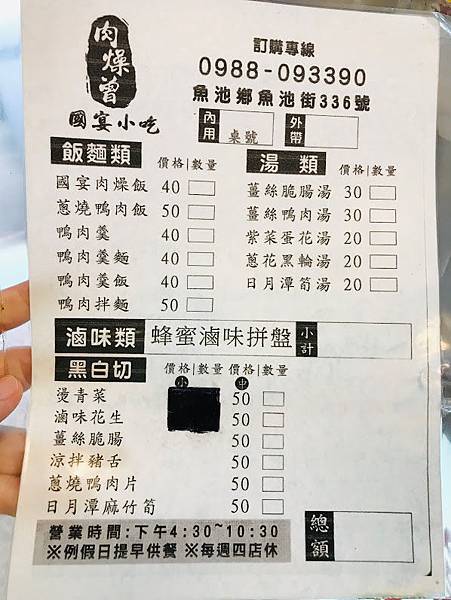 肉燥曾
國宴小吃
訂購專線
0988-093390
魚池鄉魚池街336號
內用 桌號 外帶
飯麵類 價格|數量
國宴肉燥飯 40
蔥燒鴨肉飯 50
鴨肉羹 40
鴨肉羹麵 40
鴨肉羹飯 40
鴨肉拌麵 50
湯類 價格|數量
薑絲脆腸湯 30
薑絲鴨肉湯 30
紫菜蛋花湯 20
蔥花黑輪湯 20
日月潭筍湯 20
滷味類 蜂蜜滷味拼盤 小計
黑白切 價格|數量 價格|數量
小 中
燙青菜 50
滷味花生 50
薑絲脆腸 50
涼拌豬舌 50
蔥燒鴨肉片 50
日月潭麻竹筍 50
營業時間:下午4:30~10:30
※例假日提早供餐 ※每週四店休
總額